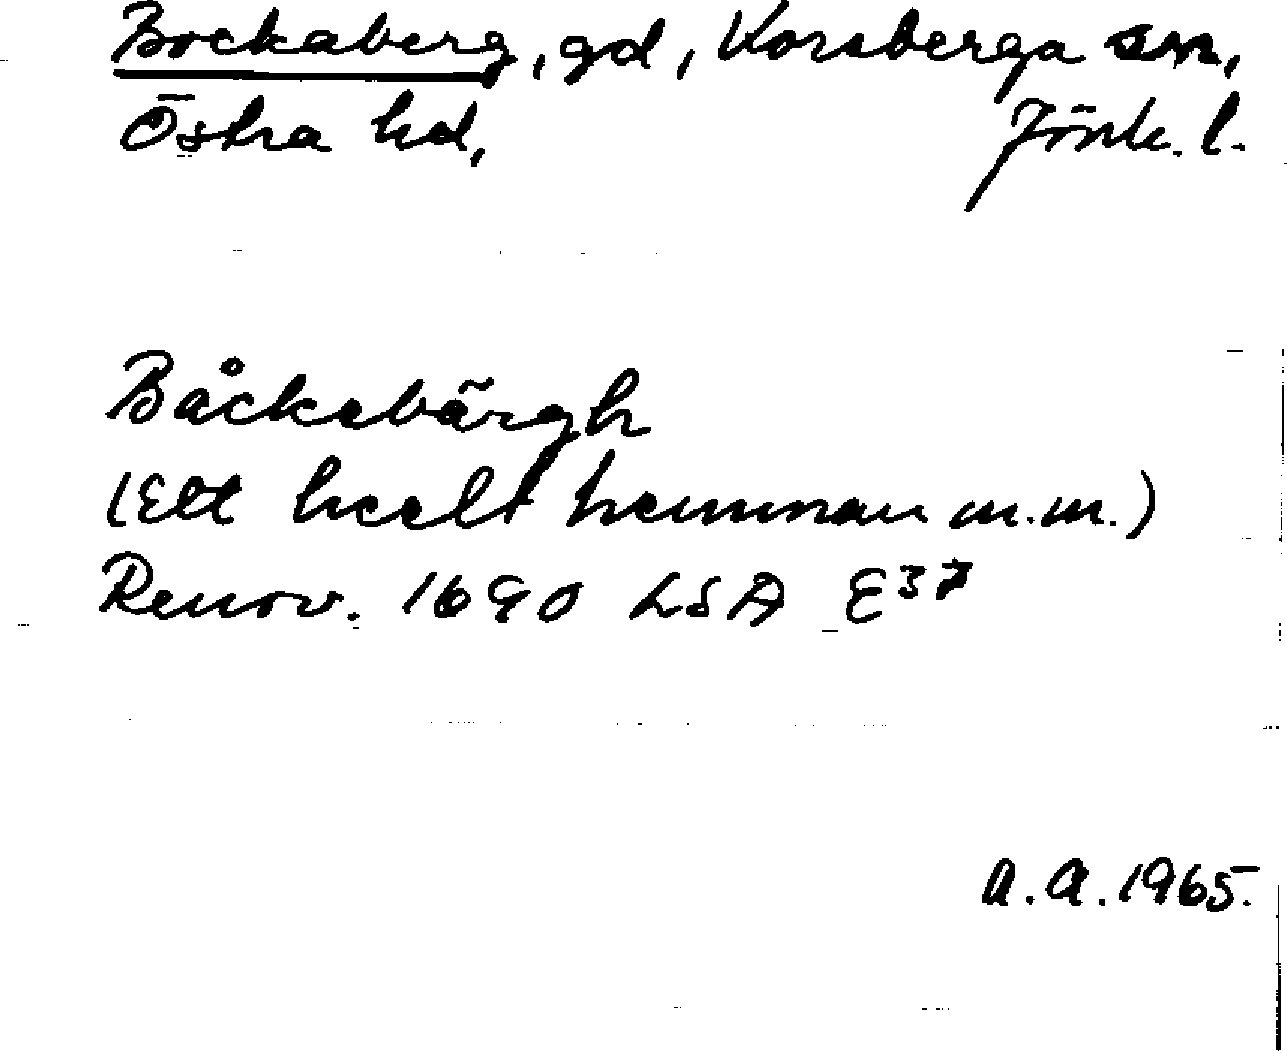 Bockaberg, gd, Korsberga sn,
Östra hd, Jönk. l.
Båckabärgh
(Ett heelt hemman m.m.)
Renov. 1690 LSA E37
A.A. 1965.